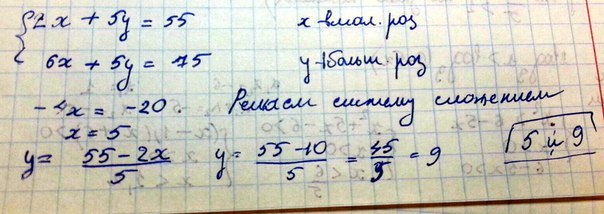 { 2x + 5y = 55 x в мал. роз
6x + 5y = 75 y в больш. роз
-4x = -20. Решаем систему сложением
x = 5
y = \frac{55-2x}{5} y = \frac{55-10}{5} = \frac{45}{5} = 9 5 и 9